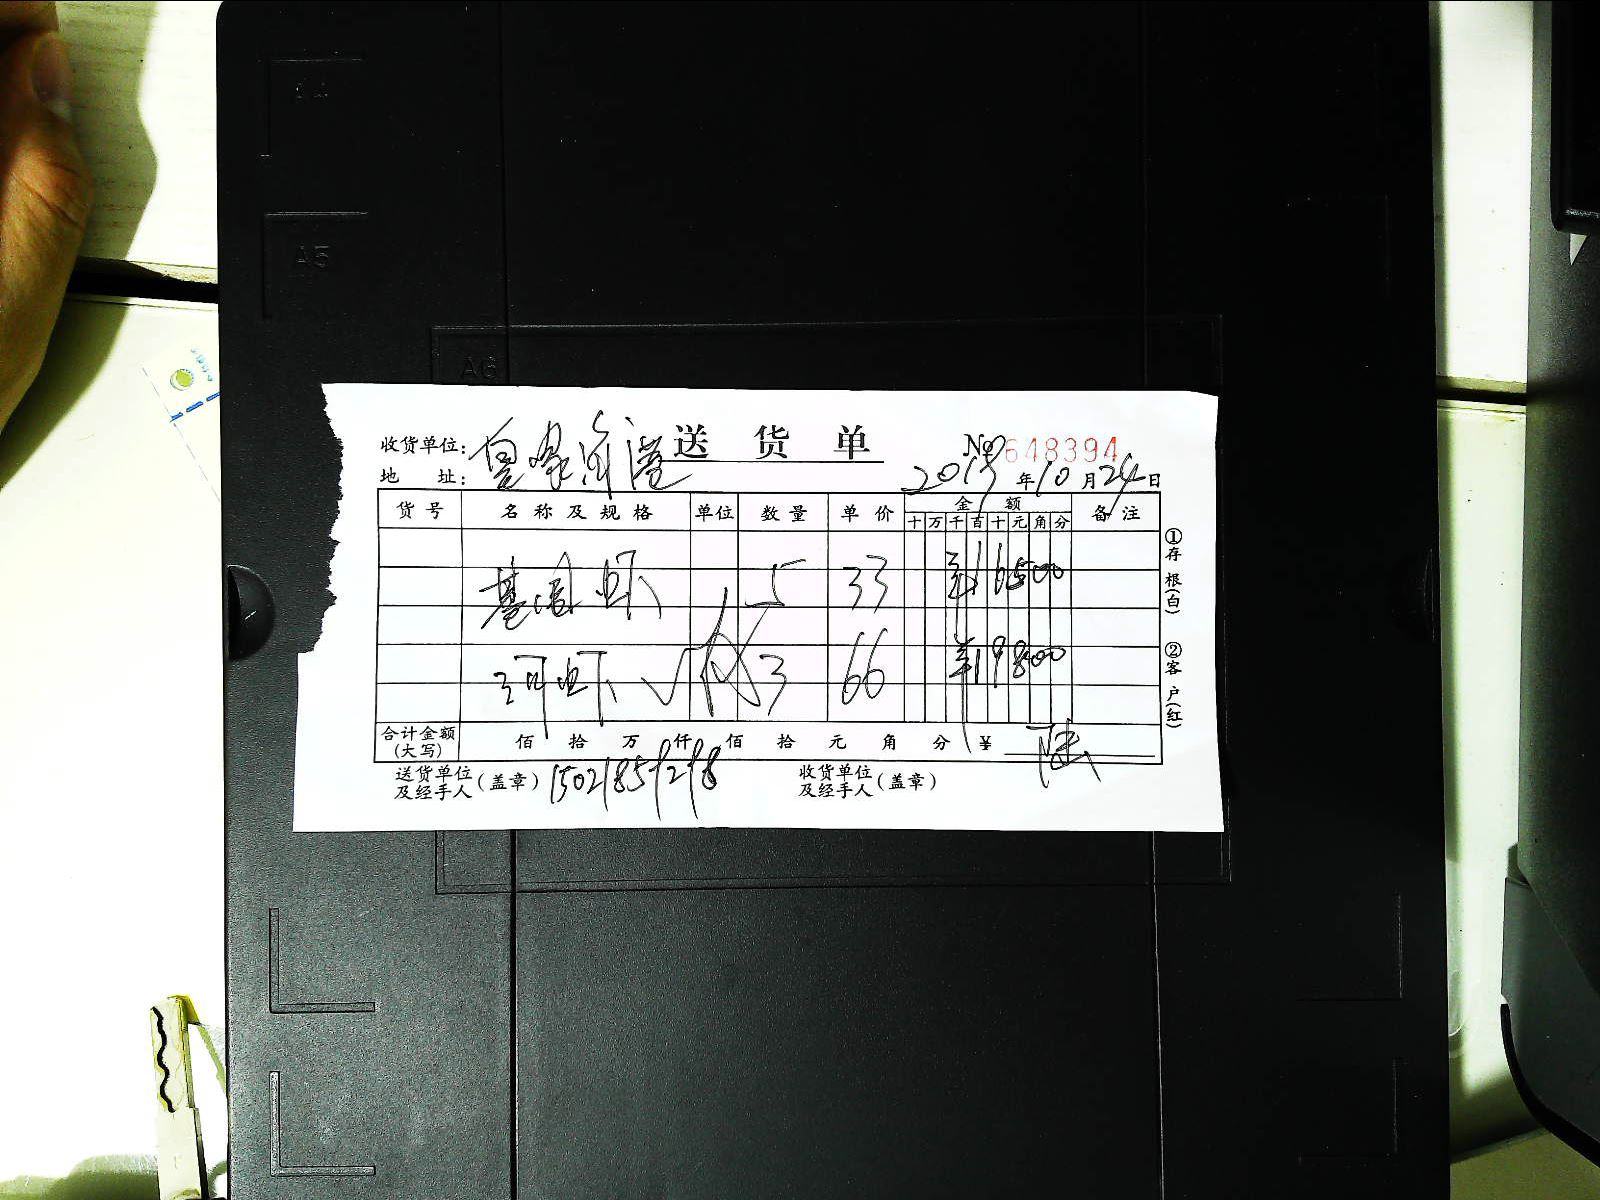 A4
A5
A6
送货单
收货单位:
№ 648394
地 址:
2019年10月24日
货号 名称及规格 单位 数量 单价 金额 备注
十 万 千 百 十 元 角 分
基围虾 5 33 ¥16500
河虾 付 3 66 ¥19800
合计金额 佰 拾 万 仟 佰 拾 元 角 分 ¥
(大写)
送货单位 (盖章) 收货单位 (盖章)
及经手人 及经手人
①存根(白)
②客户(红)